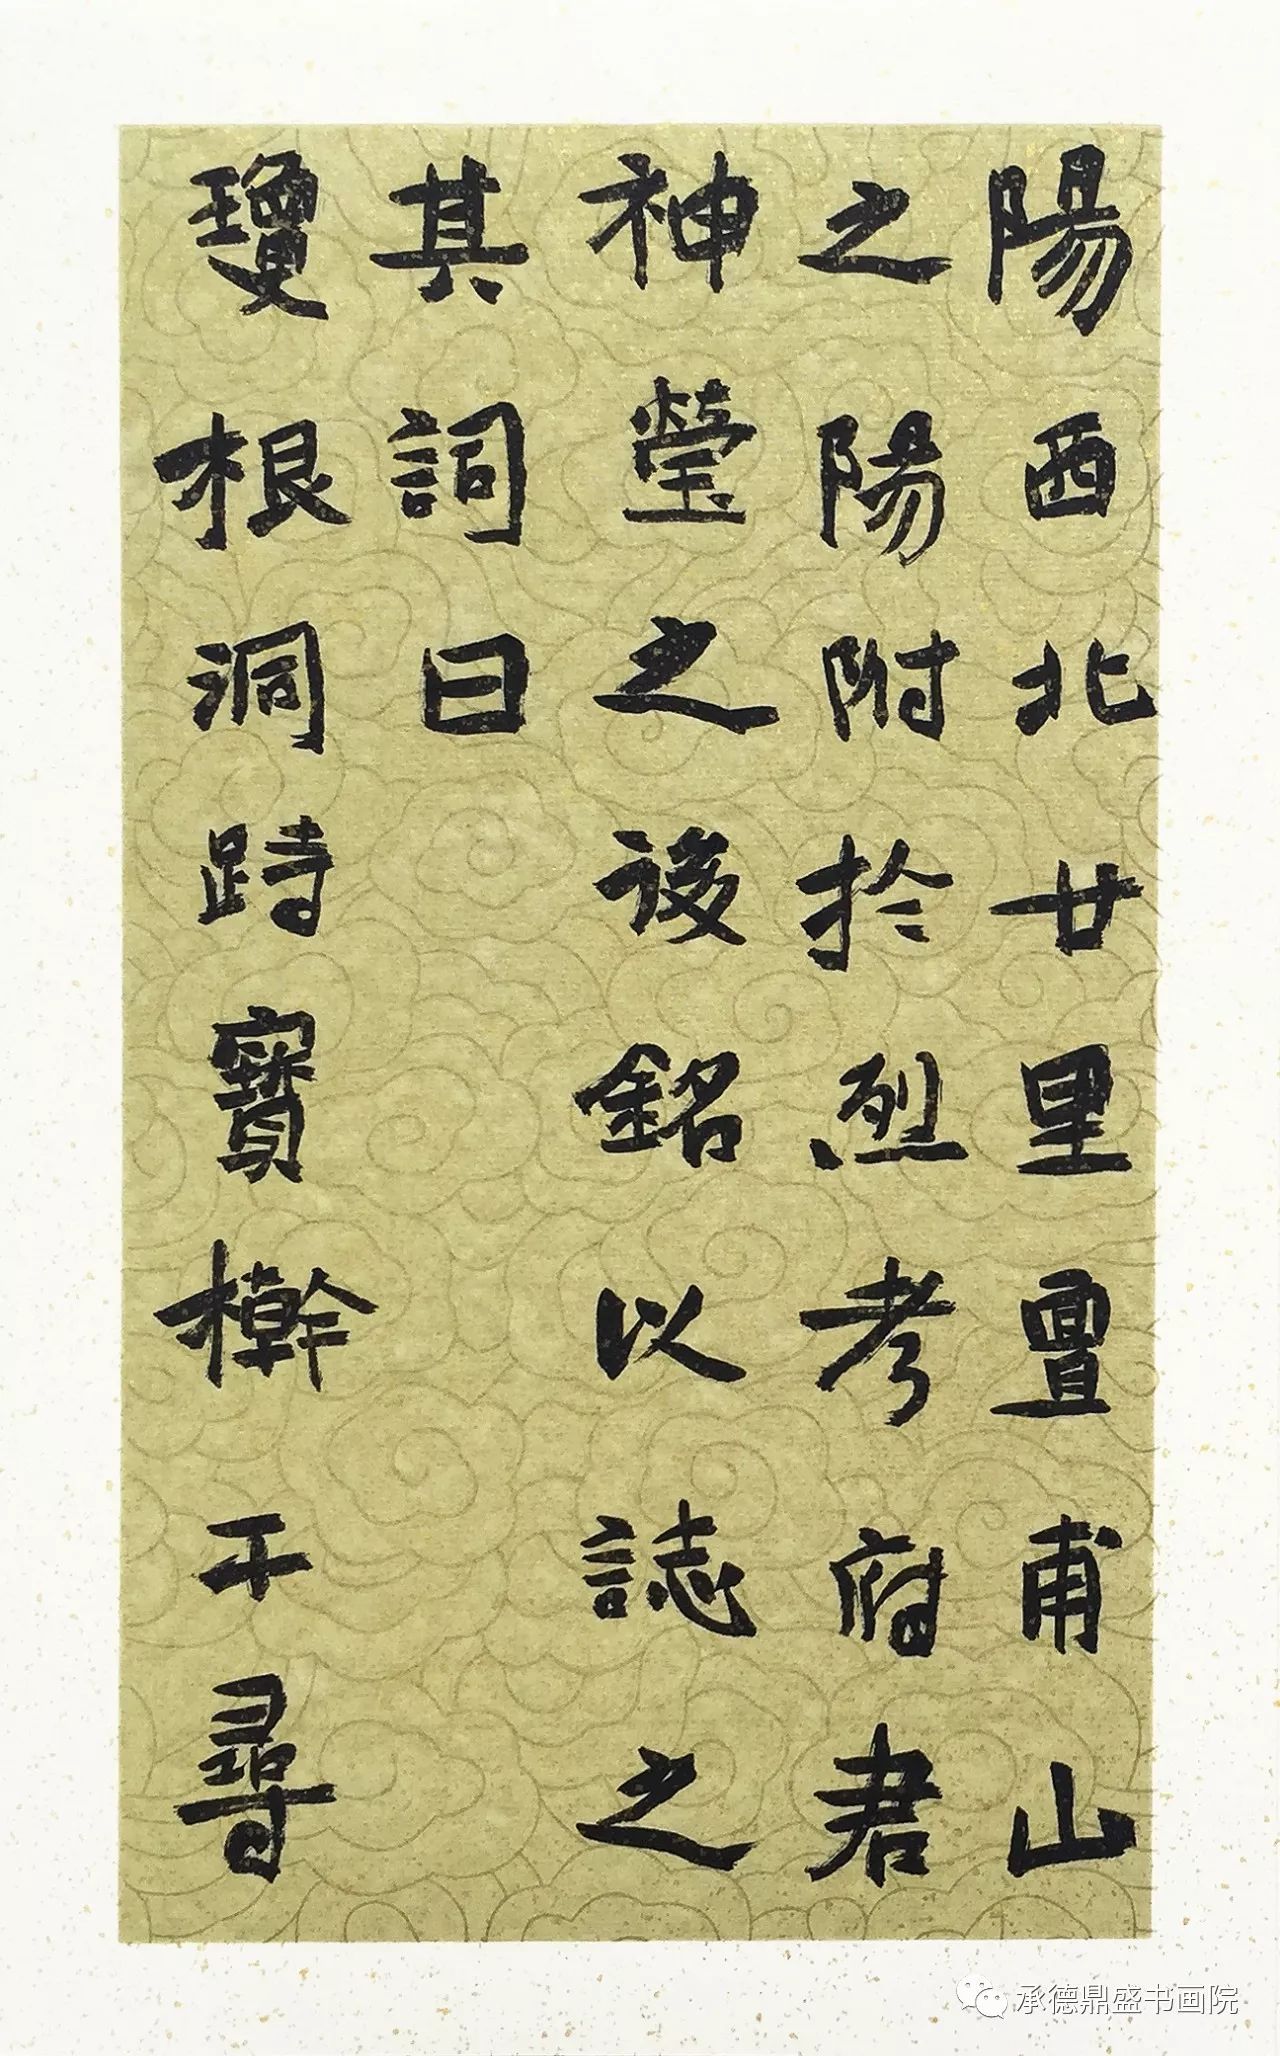 陽西北廿里亶甫山
之陽附於烈考府君
神塋之後銘以誌之
其詞曰
瓊根洞跱寶榦千尋
承德鼎盛书画院